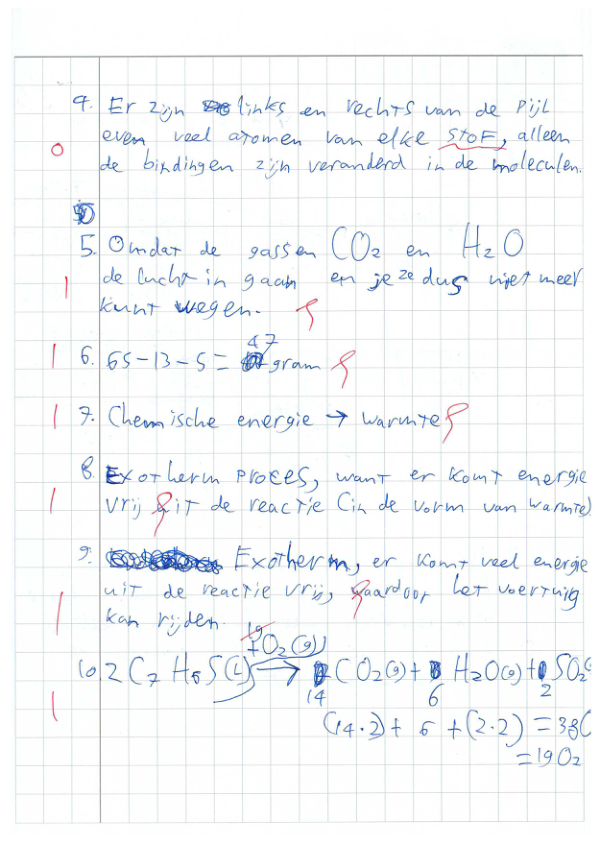 4. Er zijn links en rechts van de pijl
0 even veel atomen van elke stof, alleen
de bindingen zijn veranderd in de moleculen.
5. Omdat de gassen CO2 en H2O
1 de lucht in gaan en je ze dus niet meer
kunt wegen.
1 6. 65-13-5= 47 gram
1 7. Chemische energie → warmte
8. Exotherm proces, want er komt energie
1 vrij uit de reactie (in de vorm van warmte)
9. Exotherm, er komt veel energie
1 uit de reactie vrij, waardoor het voertuig
kan rijden.
19
+O2(g)
10. 2 C7 H6S(L) → CO2(g) + H2O(g) + SO2(
14 6 2
1 (14·2) + 6 + (2·2) = 38(
=19O2